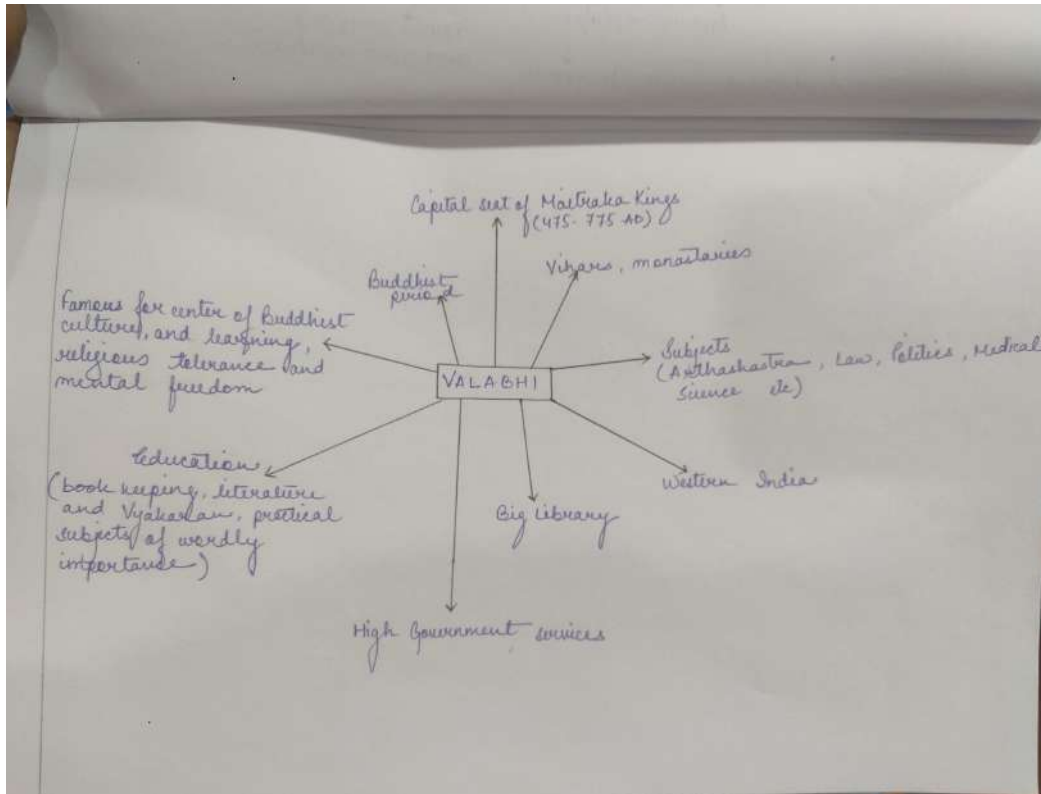 Capital seat of Maitraka Kings
(475-775 AD)
Buddhist
period
Vihars, monastaries
Famous for center of Buddhist
culture, and learning,
religious tolerance and
mental freedom
Subjects
(Arthashastra, Law, Politics, Medical
Science etc)
VALABHI
Education
(book keeping, literature
and Vyakaran, practical
subjects of wordly
importance)
Western India
Big Library
High Government services